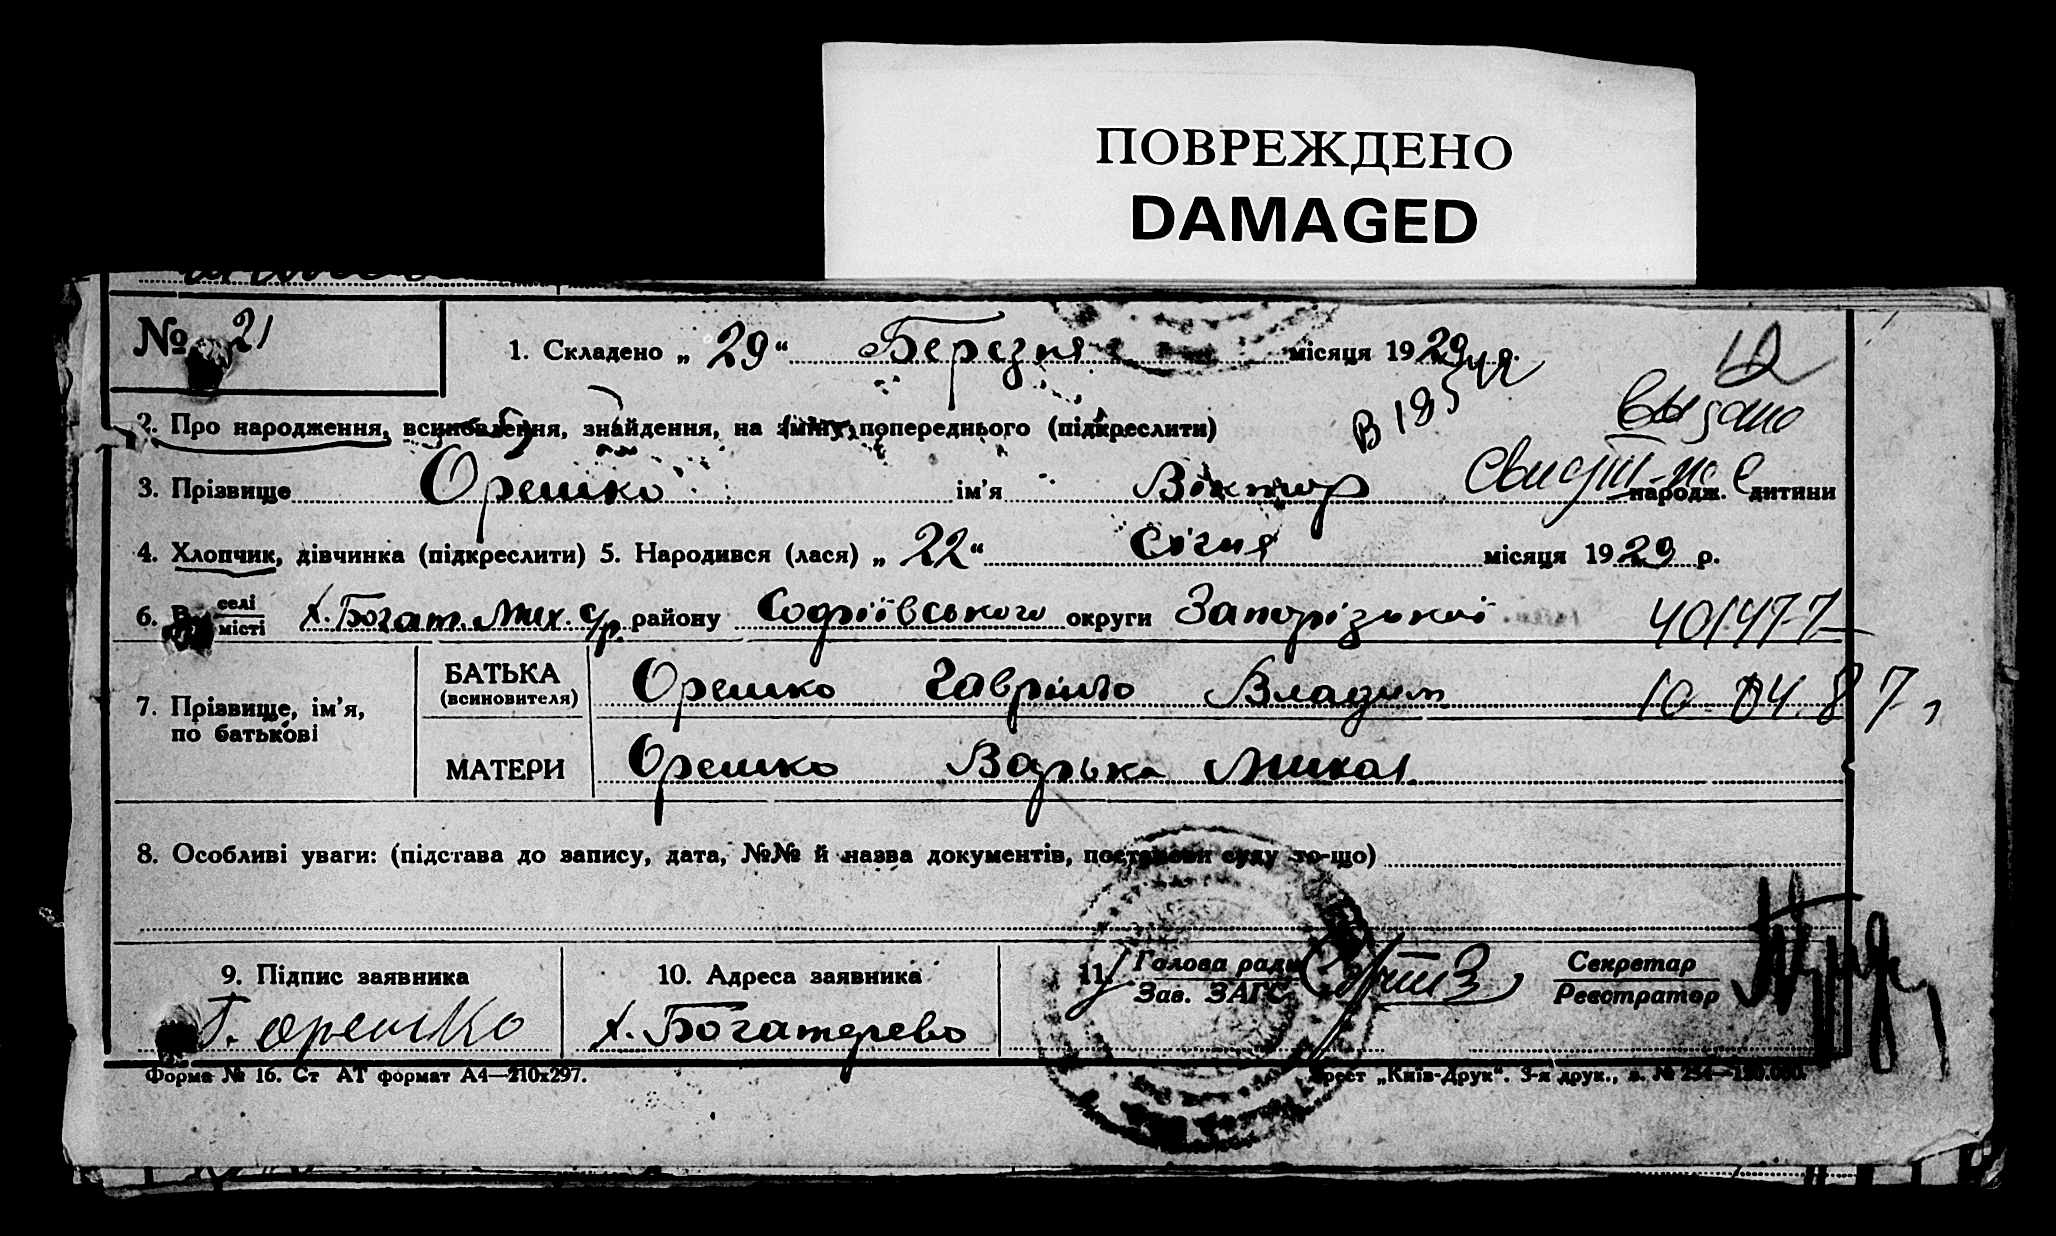 ПОВРЕЖДЕНО
DAMAGED
№ 21
1. Складено „ 29 “ Березня місяця 1929 р.
12
В 1854
2. Про народження, всиновлення, знайдення, на зміну попереднього (підкреслити)
выдано
3. Прізвище Орешко ім’я Віктор
свидт-во
народж. дитини
4. Хлопчик, дівчинка (підкреслити) 5. Народився (лася) „ 22 “ Січня місяця 1929 р.
6. В селі
місті
х. Богат. Мих. с/р. району Софіївського округи Запорізької
401477
7. Прізвище, ім’я,
по батькові
БАТЬКА
(всиновителя)
Орешко Гаврило Владим
10.04.87
МАТЕРИ
Орешко Варька Михай
8. Особливі уваги: (підстава до запису, дата, №№ й назва документів, постанови суду то-що)
9. Підпис заявника
Г. Орешко
10. Адреса заявника
х. Богатерево
11. Голова ради
Зав. ЗАГС
Секретар
Реєстратор
Форма № 16. Ст АТ формат А4—210х297.
Трест „Київ-Друк“. 3-я друк., з. № 254—120.000.